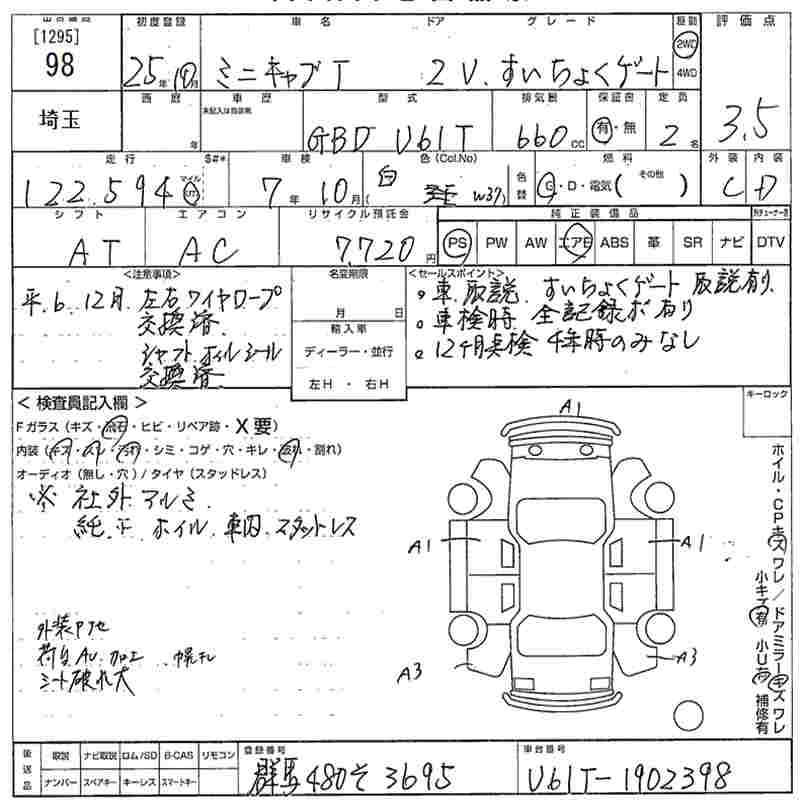 [1295]
98
初度登録 車名 ドア グレード 駆動 評価点
25年10月 ミニキャブT 2 V.すいちょくゲート 2WD 4WD 3.5
埼玉
西暦 年 車歴 未記入は自家用 型式 排気量 保証書 定員
GBD U61T 660cc 有・無 2名
走行 $#* 車検 色(Col.No) 燃料 外装 内装
122.594 マイル 7年10月 (白 W37) 色替 G・D・電気( その他 ) C D
シフト エアコン リサイクル預託金 純正装備品
AT AC 7,720円 PS PW AW エアB ABS 革 SR ナビ DTV
<注意事項> 名変期限 <セールスポイント>
平.6.12月.左右ワイヤロープ
交換済.
シャフトホイルシール
交換済
月 日
輸入車
ディーラー・並行
左H ・右H
車.取説.すいちょくゲート 取説有り.
車検時 全記録ボ有り
12ヶ月点検 4年時のみなし
<検査員記入欄> キーロック
Fガラス(キズ・飛石・ヒビ・リペア跡・X要)
内装(キズ・スレ・汚れ・シミ・コゲ・穴・キレ・破れ・割れ)
オーディオ(無し・穴)/タイヤ(スタッドレス)
※社外アルミ
純正ホイル.車内.スタットレス
外装サビ他
荷台AU.加工 幌ナシ
シート破れ大
A1
A1 A1
A3 A3
ホイル・CPキズワレ/ドアミラーキズワレ
小キズ有 小U有 補修有
後送品 取説 ナビ取説 ロム/SD B-CAS リモコン 登録番号 車台番号
ナンバー スペアキー キーレス スマートキー 群馬480そ3695 U61T-1902398